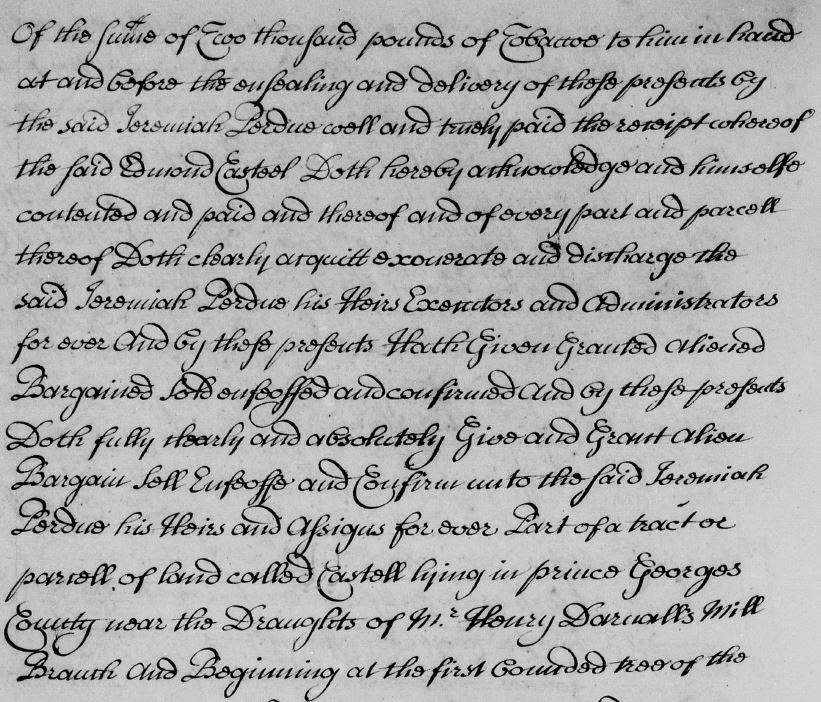 Of the sume of Two thousand pounds of Tobaccoe to him in hand
at and before the ensealing and delivery of these presents by
the said Jeremiah Perdue well and truely paid the receipt whereof
the said Edmond Casteel Doth hereby acknowledge and himselfe
contented and paid and thereof and of every part and parcell
thereof Doth clearly acquitt exonerate and discharge the
said Jeremiah Perdue his Heirs Executors and Administrators
for ever And by these presents Hath Given Granted Aliened
Bargained Sold enfeoffed and confirmed And by these presents
Doth fully clearly and absolutely Give and Grant Alien
Bargain Sell Enfeoffe and Confirm unto the said Jeremiah
Perdue his Heirs and Assigns for ever Part of a tract or
parcell of land called Castell lying in prince Georges
County near the Draughts of Mr. Henry Darnalls Mill
Branch And Beginning at the first bounded tree of the